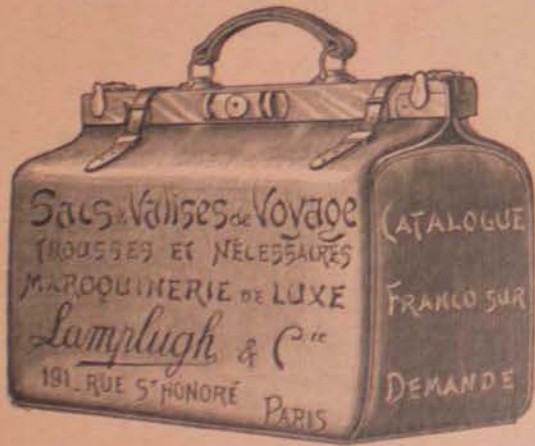 Sacs & Valises de Voyage
TROUSSES ET NÉCESSAIRES
MAROQUINERIE DE LUXE
Lamplugh & Cie
191_RUE St HONORÉ
PARIS
CATALOGUE
FRANCO SUR
DEMANDE